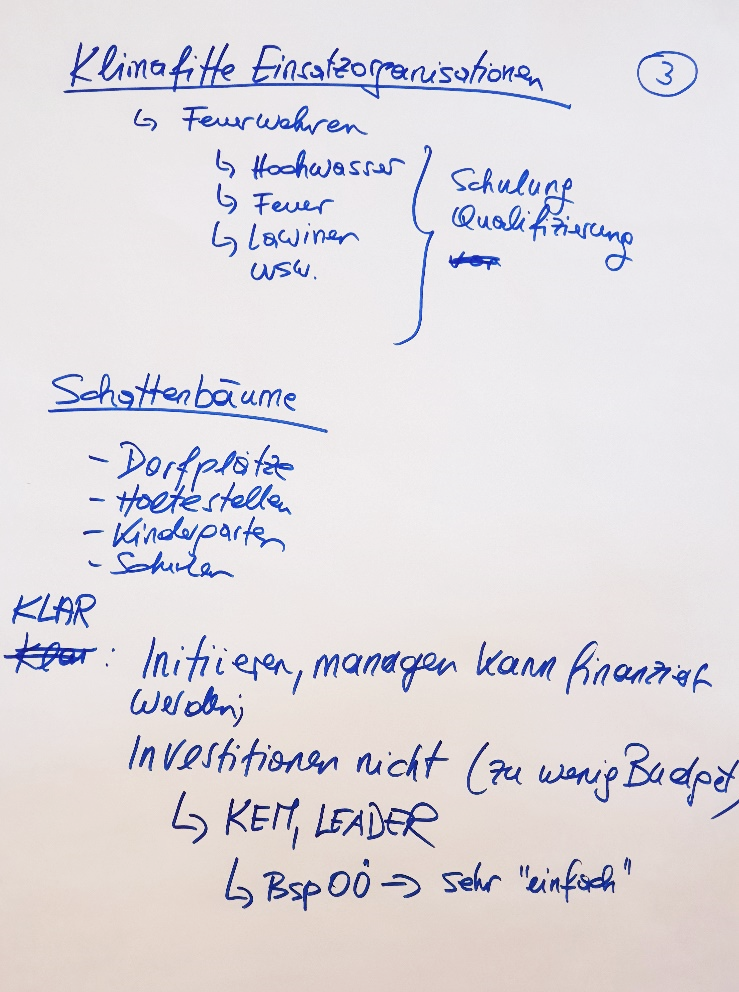 Klimafitte Einsatzorganisationen
3
↳ Feuerwehren
↳ Hochwasser
↳ Feuer
↳ Lawinen
usw.
Schulung
Qualifizierung
Schattenbäume
- Dorfplätze
- Haltestellen
- Kindergarten
- Schulen
KLAR
Klar: Initiieren, managen kann finanziert
werden;
Investitionen nicht (zu wenig Budget)
↳ KEM, LEADER
↳ Bsp OÖ → sehr "einfach"